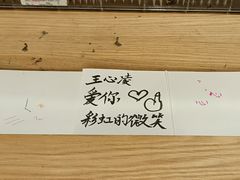 王心凌
爱你♡
彩虹的微笑